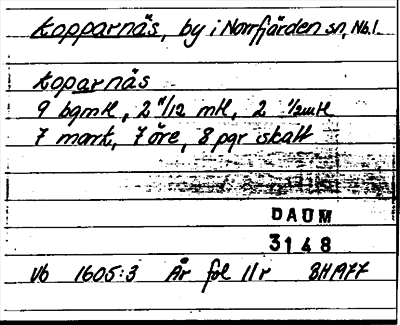 Kopparnäs, by i Norrfjärden sn, Nb.l.
Koparnäs
9 bgmtl, 2 11/12 mtl, 2 1/2 mtl
7 mark, 7 öre, 8 pgr skatt
DAUM
3148
Vb 1605:3 År fol 11r BH 1977